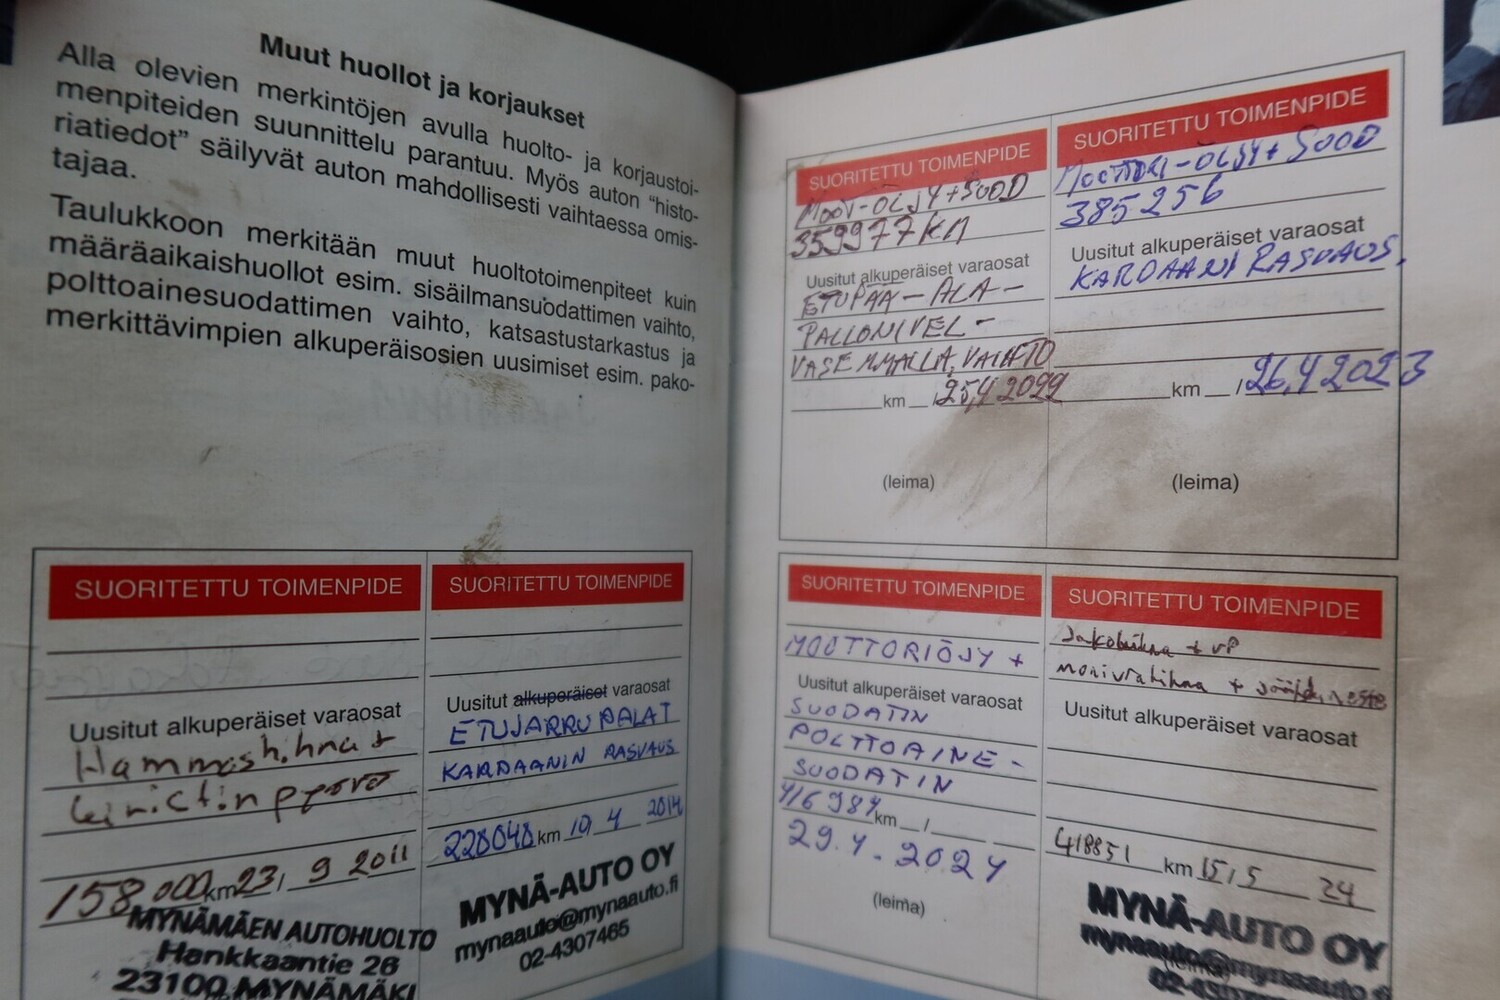 Muut huollot ja korjaukset
Alla olevien merkintöjen avulla huolto- ja korjaustoi-
menpiteiden suunnittelu parantuu. Myös auton “histo-
riatiedot” säilyvät auton mahdollisesti vaihtaessa omis-
tajaa.
Taulukkoon merkitään muut huoltotoimenpiteet kuin
määräaikaishuollot esim. sisäilmansuodattimen vaihto,
polttoainesuodattimen vaihto, katsastustarkastus ja
merkittävimpien alkuperäisosien uusimiset esim. pako-
SUORITETTU TOIMENPIDE
Uusitut alkuperäiset varaosat
Hammashihna +
kiristinpyörä
158 000 km 23/ 9 2011
MYNÄMÄEN AUTOHUOLTO
Hankkaantie 26
23100 MYNÄMÄKI
SUORITETTU TOIMENPIDE
Uusitut alkuperäiset varaosat
ETUJARRUPALAT
KARDAANIN RASVAUS
228048 km 10 4 2014
MYNÄ-AUTO OY
mynaauto@mynaauto.fi
02-4307465
SUORITETTU TOIMENPIDE
MOOT-ÖLJY+SUOD
359977 KM
Uusitut alkuperäiset varaosat
ETUPÄÄ-ALA-
PALLONIVEL-
VASEMMALLA, VAIHTO
km / 25,4 2022
(leima)
SUORITETTU TOIMENPIDE
MOOTTORI-ÖLJY+ SUOD
385256
Uusitut alkuperäiset varaosat
KARDAANI RASVAUS.
km / 26,4 2023
(leima)
SUORITETTU TOIMENPIDE
MOOTTORIÖJY +
Uusitut alkuperäiset varaosat
SUODATIN
POLTTOAINE-
SUODATIN
416984 km /
29.4.2024
(leima)
SUORITETTU TOIMENPIDE
Jakohihna + VP
monivrahihna + jäähd.neste
Uusitut alkuperäiset varaosat
418851 km 15,5 24
MYNÄ-AUTO OY
mynaauto@mynaauto.fi